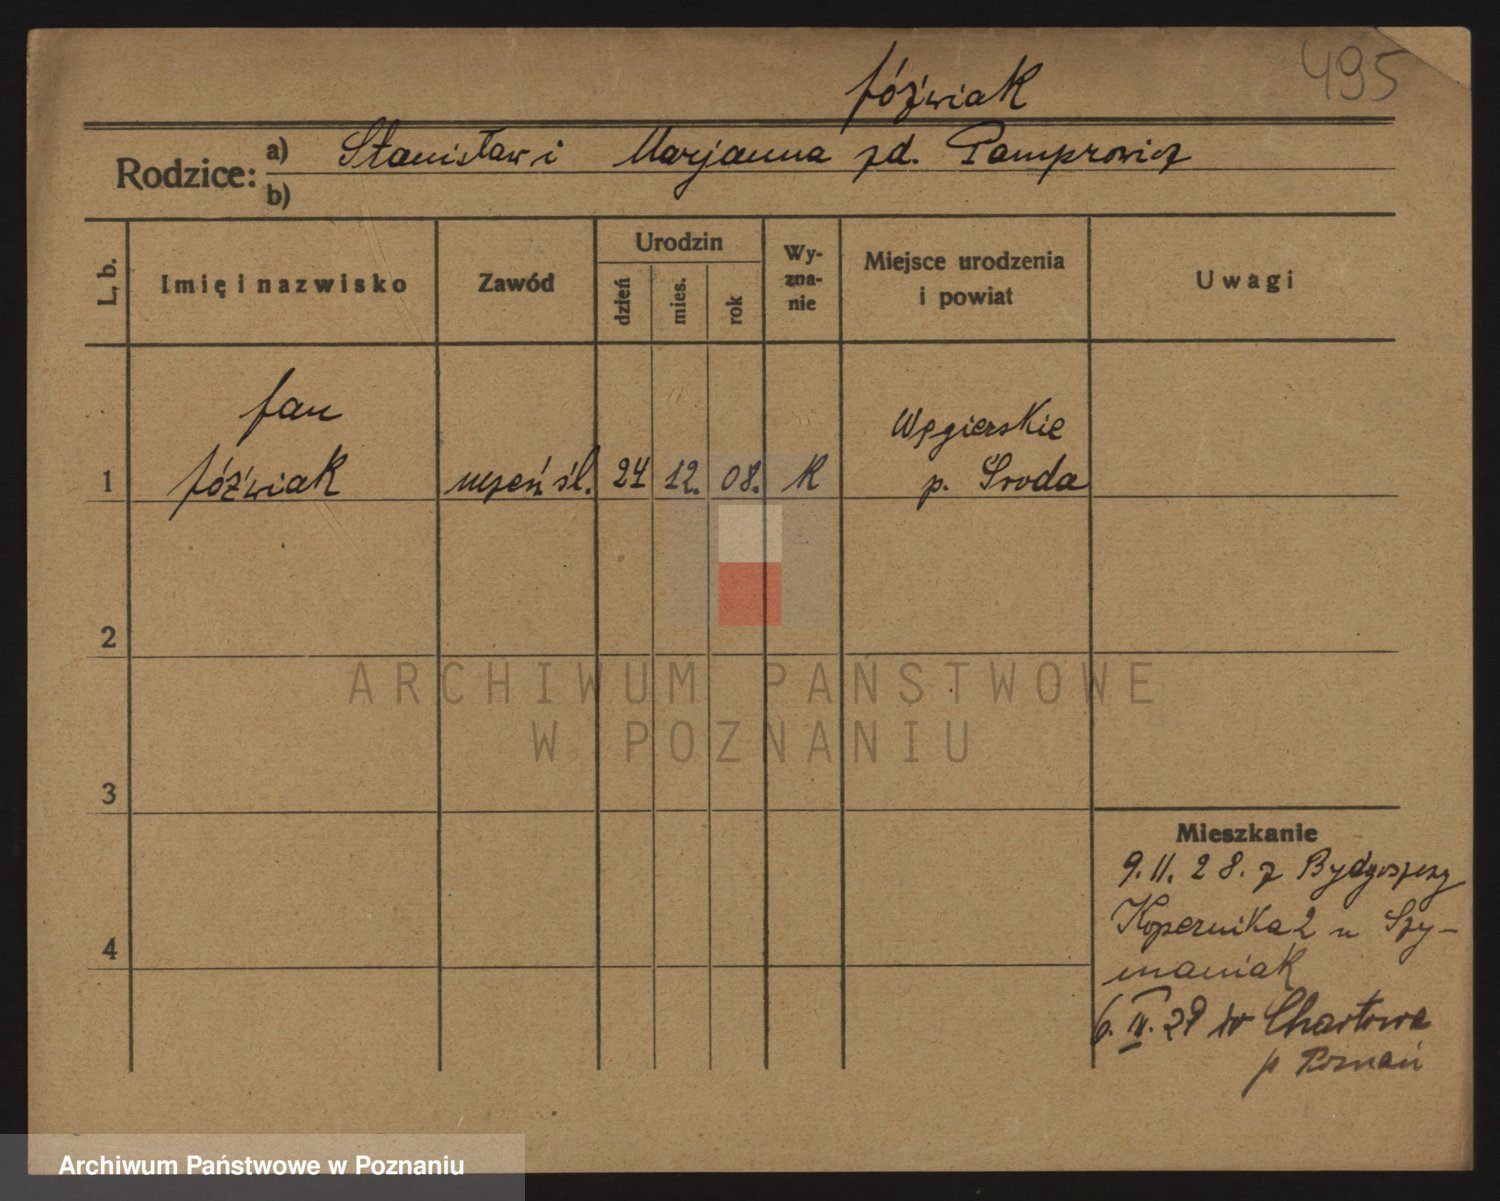 495
Jóźwiak
Rodzice: a) Stanisław i Marjanna zd. Pamprowicz
b)
L. b. Imię i nazwisko Zawód Urodzin dzień mies. rok Wyznanie Miejsce urodzenia i powiat Uwagi
Jan Węgierskie
1 Jóźwiak uczeń śl. 24 12. 08. K p. Środa
2
ARCHIWUM PAŃSTWOWE
W POZNANIU
3
Mieszkanie
9. 11. 28. z Bydgoszczy
Kopernika 2 u Szy-
4 maniak
6. IV. 29 do Chartowa
p Poznań
Archiwum Państwowe w Poznaniu